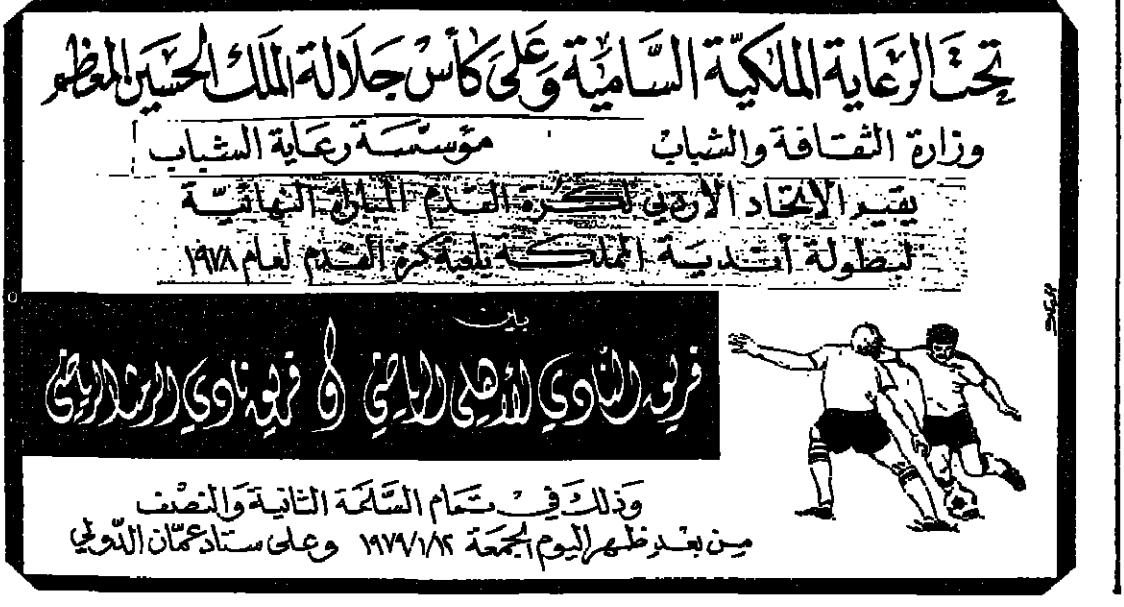 تحت الرعاية الملكية السامية وعلى كأس جلالة الملك الحسين المعظم
وزارة الثقافة والشباب مؤسسة رعاية الشباب
يقيم الاتحاد الأردني لكرة القدم المباراة النهائية
لبطولة أندية المملكة بلعبة كرة القدم لعام ١٩٧٨
بين
فريق النادي الأهلي الرياضي و فريق نادي الرمثا الرياضي
وذلك في تمام الساعة الثانية والنصف
من بعد ظهر اليوم الجمعة ١٩٧٩/١/١٢ وعلى ستاد عمان الدولي